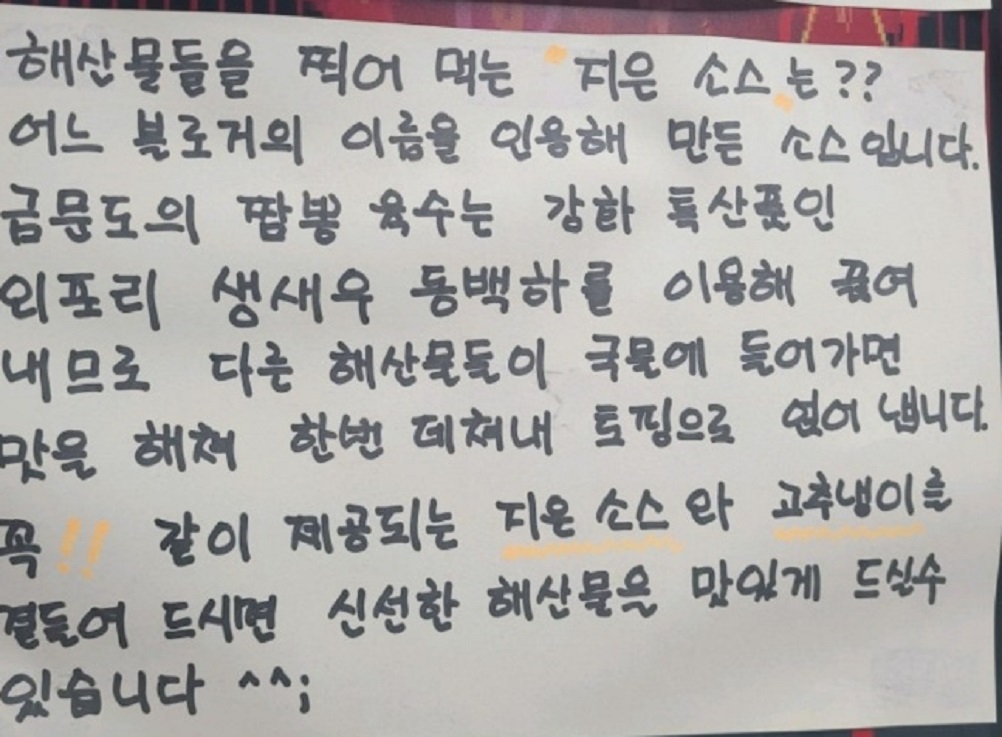 해산물들을 찍어 먹는 "지은 소스"는??
어느 블로거의 이름을 인용해 만든 소스입니다.
금문도의 짬뽕 육수는 강화 특산품인
외포리 생새우 동백하를 이용해 끓여
내므로 다른 해산물들이 국물에 들어가면
맛을 해쳐 한번 데쳐내 토핑으로 얹어 냅니다.
꼭!! 같이 제공되는 지은 소스와 고추냉이를
곁들여 드시면 신선한 해산물을 맛있게 드실수
있습니다 ^^;